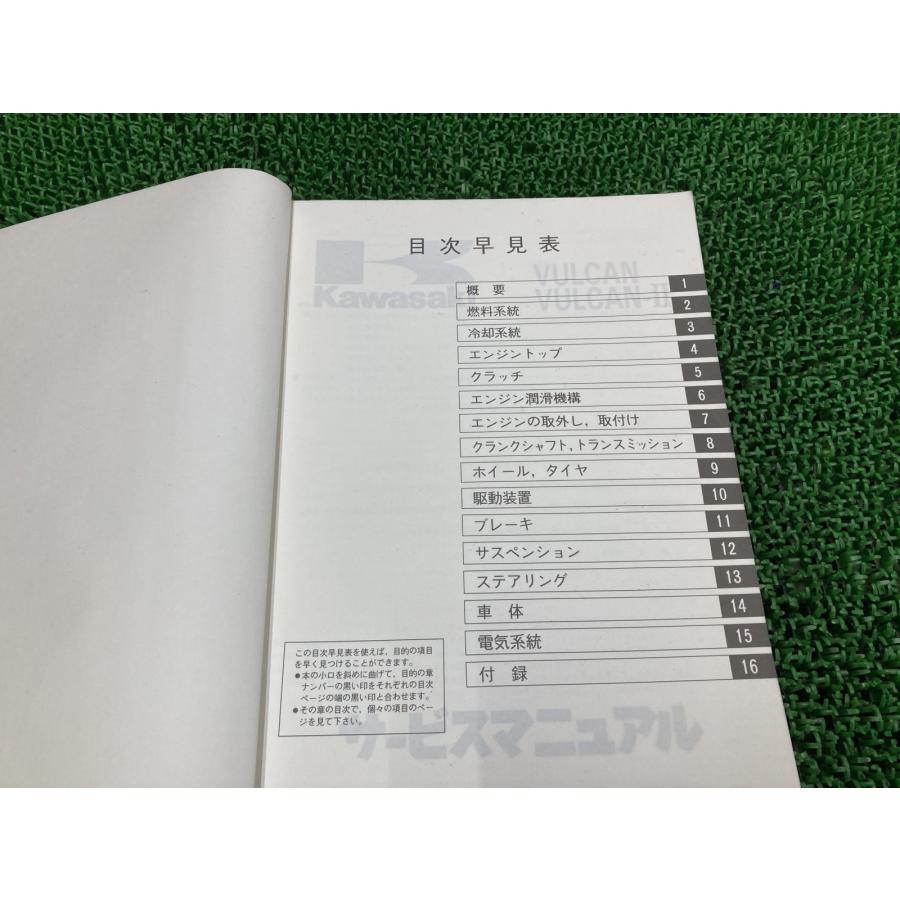 目次早見表
Kawasaki
VULCAN
VULCAN-II
概要 1
燃料系統 2
冷却系統 3
エンジントップ 4
クラッチ 5
エンジン潤滑機構 6
エンジンの取外し，取付け 7
クランクシャフト，トランスミッション 8
ホイール，タイヤ 9
駆動装置 10
ブレーキ 11
サスペンション 12
ステアリング 13
車体 14
電気系統 15
付録 16
この目次早見表を使えば，目的の項目
を早く見つけることができます。
●本の小口を斜めに曲げて，目的の章
ナンバーの黒い印をそれぞれの目次
ページの端の黒い印と合わせます。
●その章の目次で，個々の項目のペー
ジを見て下さい。
サービスマニュアル